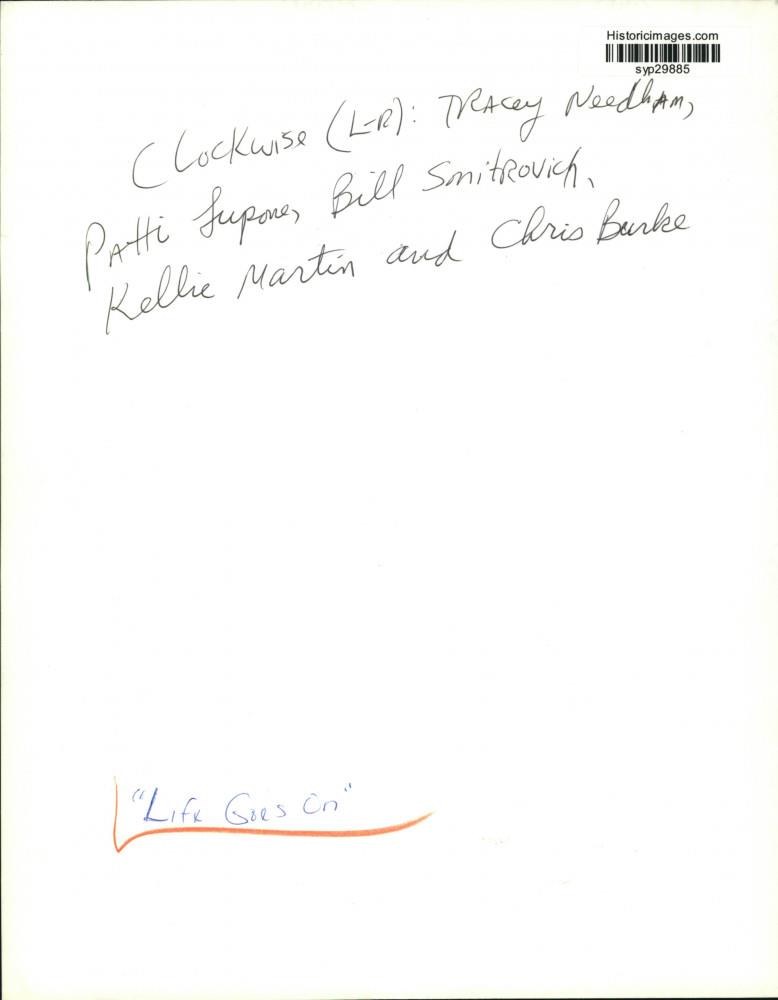 Historicimages.com
syp29885
Clockwise (L-R): Tracey Needham,
Patti Lupone, Bill Smitrovich,
Kellie Martin and Chris Burke
"Life Goes On"